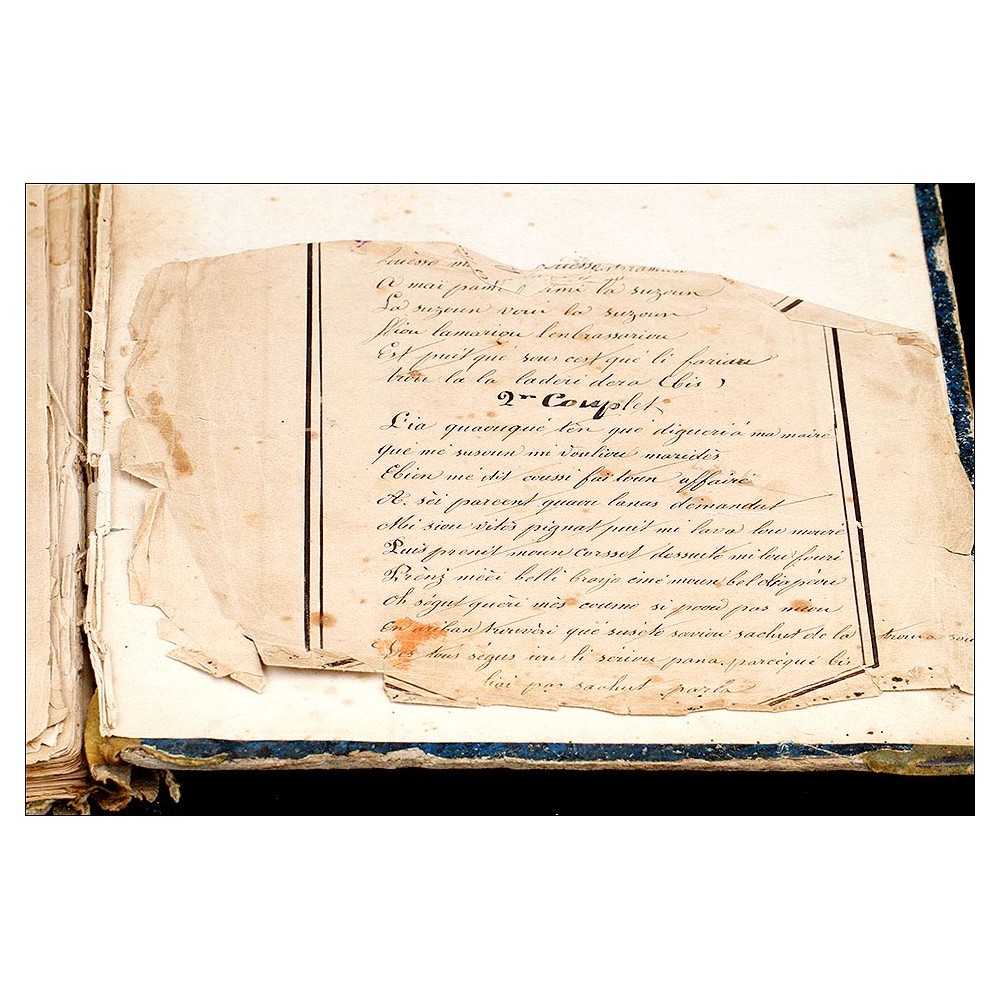 A mai la suzoun
La suzoun voui la suzoun
Siou lamariou lenbrassariou
Est puit qué sous cest qué li fariau
trou la la ladéri dera (bis)
2me Couplet
L'ia quaouqué tén que digueri a ma maire
qué mé susoun mi vouliou maridés
Ebien mé dit coussi fai toun affairé
A. séi parcent quaou lanas démandut
Mai siou vités pignat puit mi lava lou mouré
Puis prenit moun corsset dessuite mi lou fouri
Préni méci belli brayo cine moun bel chapéou
Oh ségut quéri més coumo si poou pas miou
En ariban trouvéri qué suséte saviou sachut de la
tous ségus iou li sériou pana, parcéqué
liai pas sachut parla